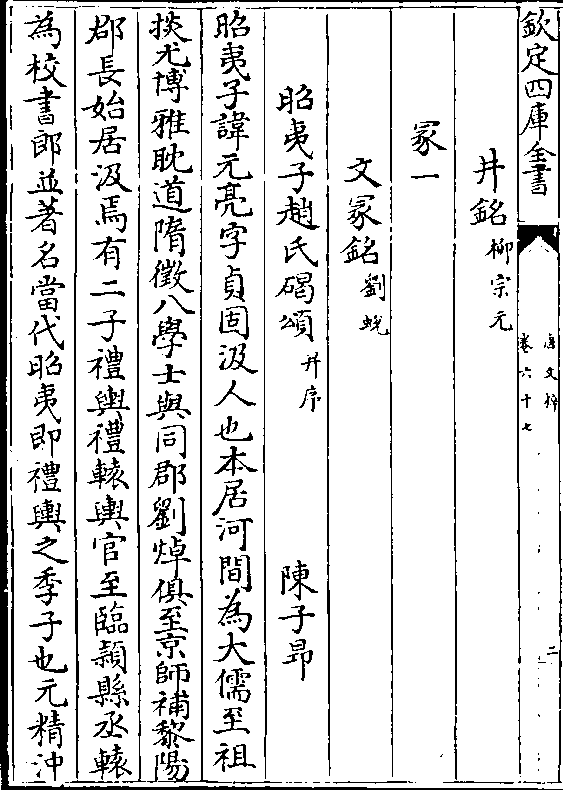 欽定四庫全書
唐文粹
卷六十七
二
井銘柳宗元
冢一
文冢銘劉蛻
昭夷子趙氏碣頌并序　陳子昻
昭夷子諱元亮字貞固汲人也本居河間為大儒至祖
掞尤博雅耽道隋徵八學士與同郡劉焯俱至京師補黎陽
郡長始居汲焉有二子禮輿禮轅輿官至臨潁縣丞轅
為校書郎並著名當代昭夷即禮輿之季子也元精沖